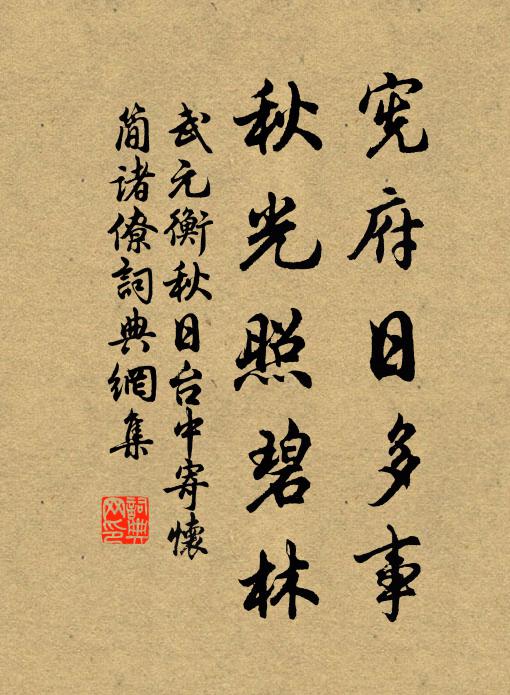 宪府日多事
秋光照碧林
武元衡秋日台中寄懷
簡诸僚詞典網集
詞典
网印